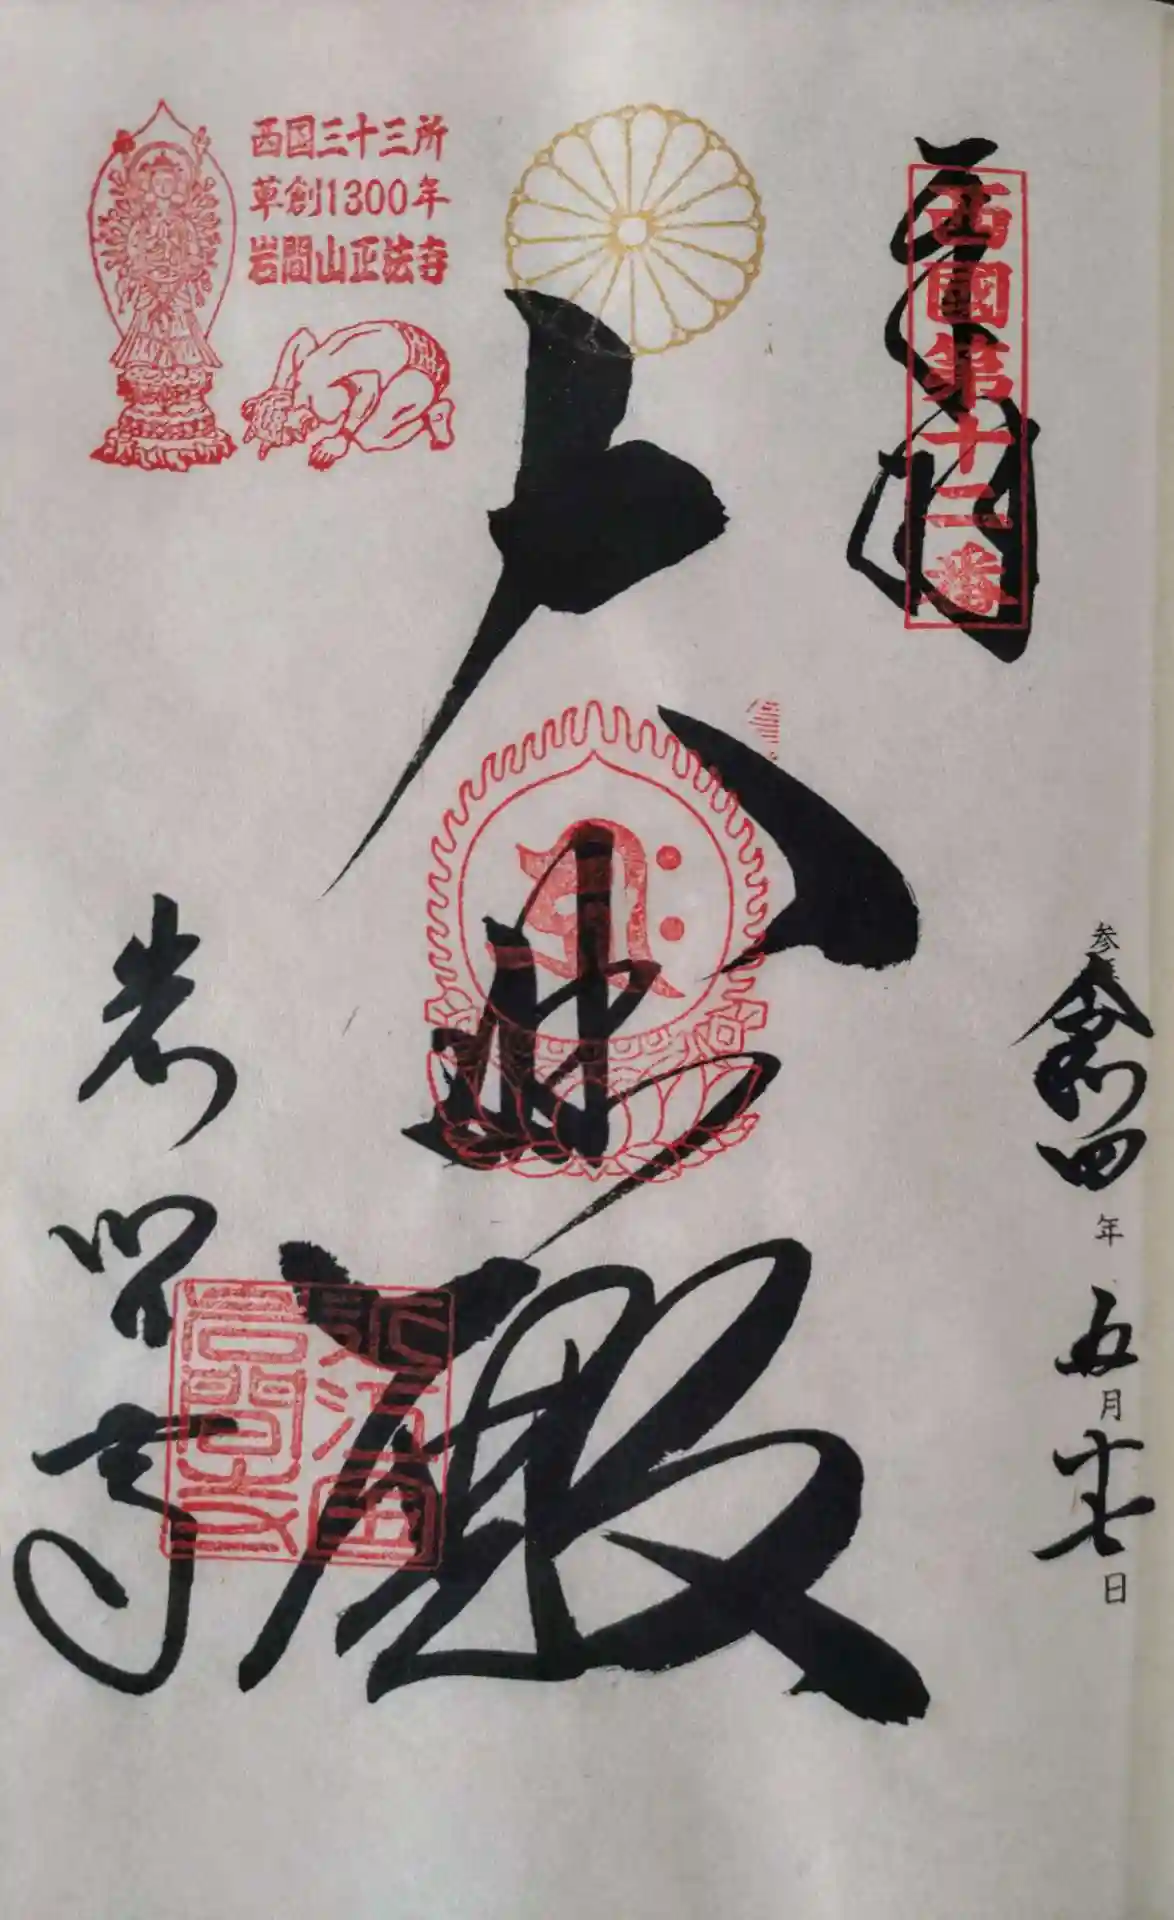 奉拝
西國第十二番
参拝
令和四年五月十七日
大悲殿
西国三十三所
草創1300年
岩間山正法寺
岩間寺